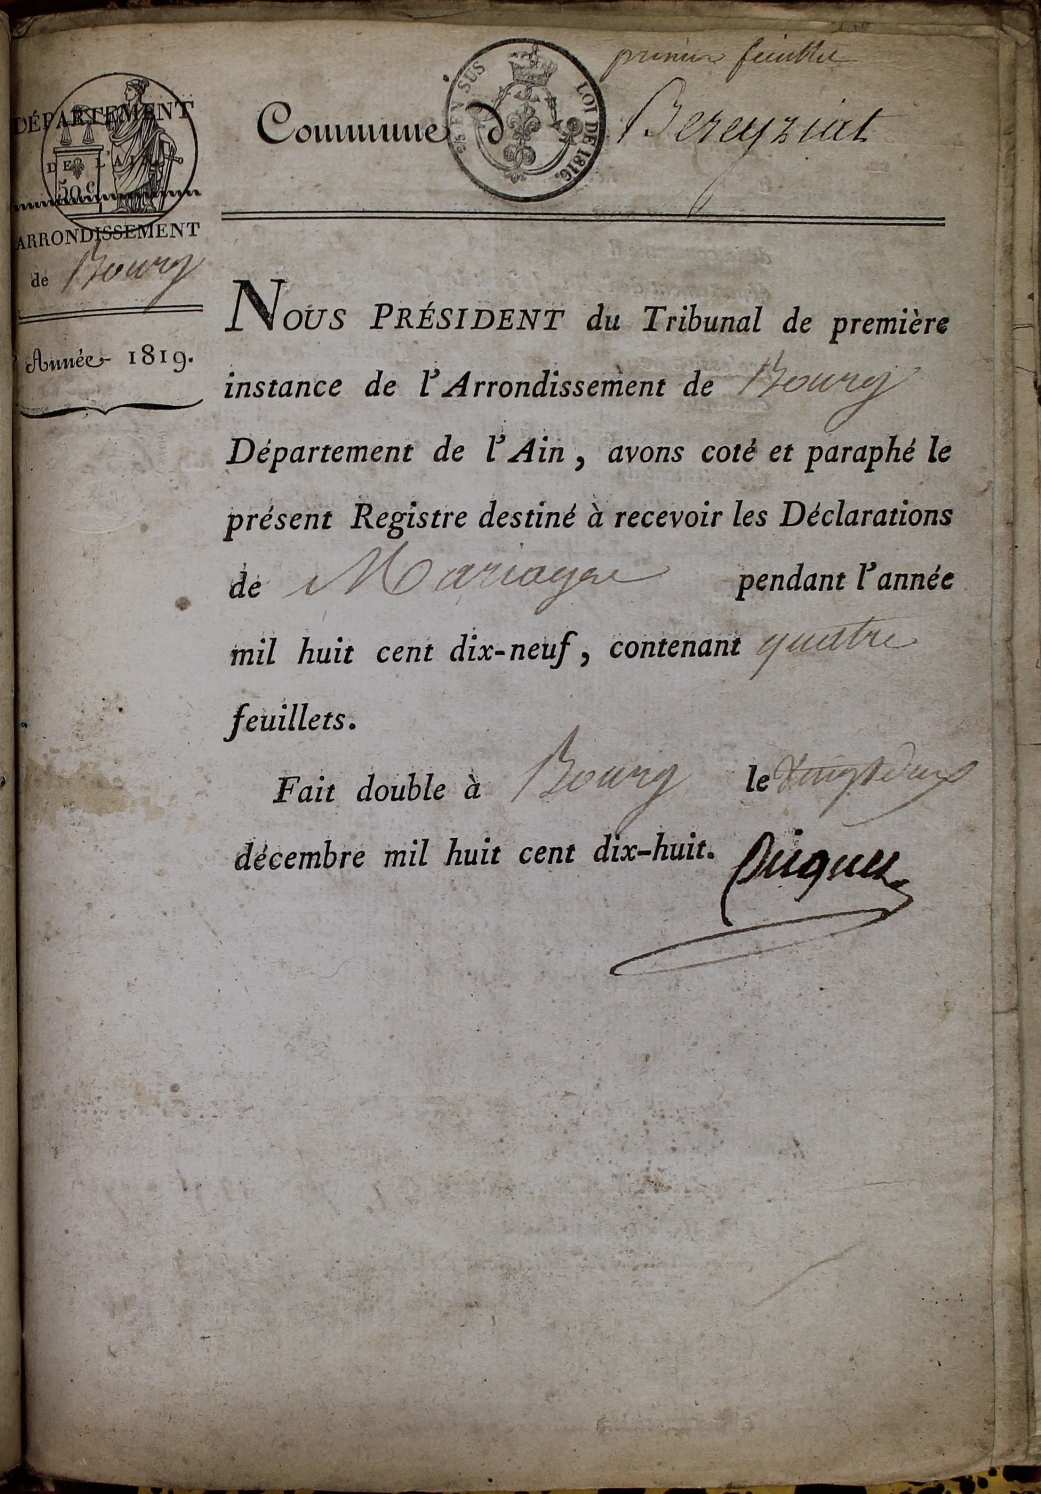 premier feuillet
DÉPARTEMENT
DE L'AIN
50 c
ARRONDISSEMENT
de Bourg
Année 1819.
EN SUS
LOI DE 1816.
Commune d Bereyziat
NOUS PRÉSIDENT du Tribunal de première
instance de l'Arrondissement de Bourg
Département de l'Ain, avons coté et paraphé le
présent Registre destiné à recevoir les Déclarations
de Mariage pendant l'année
mil huit cent dix-neuf, contenant quatre
feuillets.
Fait double à Bourg le Vingt deux
décembre mil huit cent dix-huit.